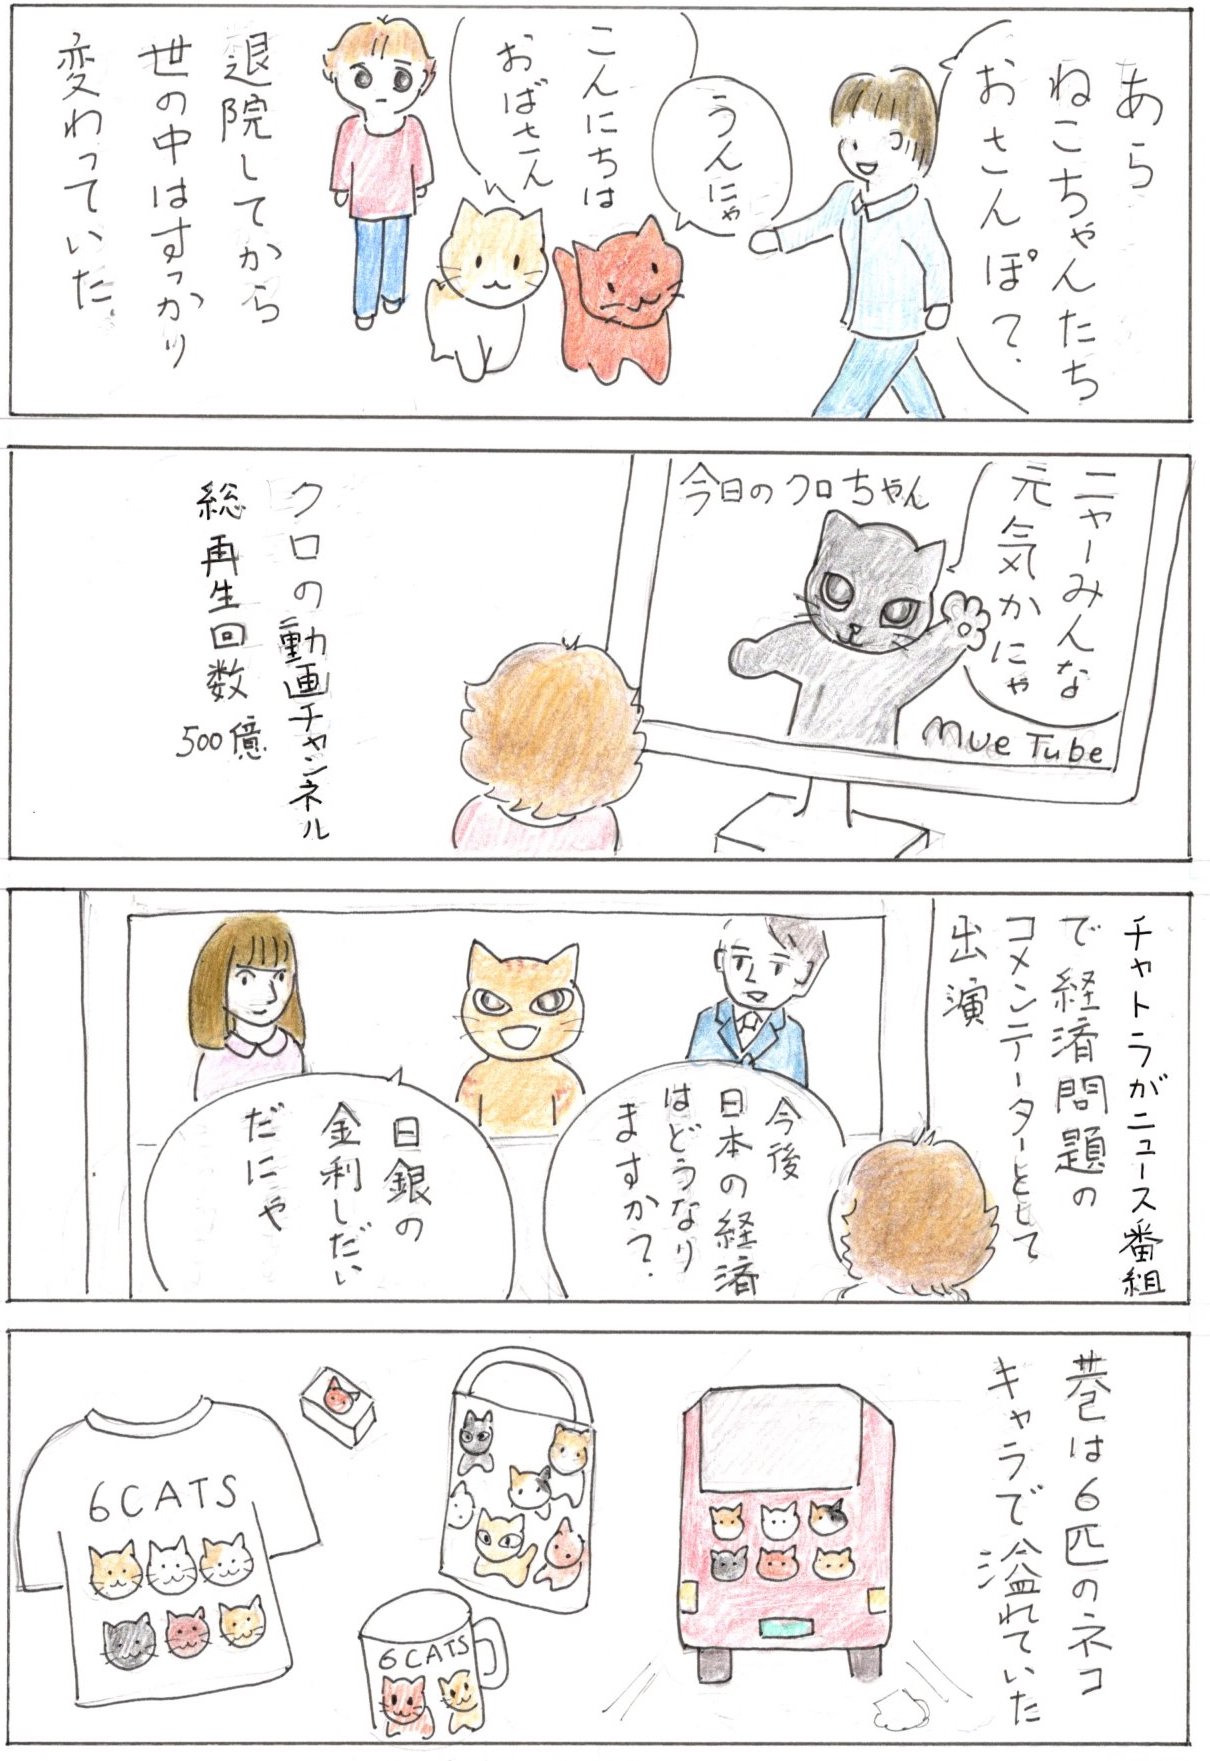 あら
ねこちゃんたち
おさんぽ?
うんにゃ
こんにちは
おばさん
退院してから
世の中はすっかり
変わっていた
ニャーみんな
元気かにゃ
今日のクロちゃん
Mue Tube
クロの動画チャンネル
総再生回数
500億
チャトラがニュース番組
で経済問題の
コメンテーターとして
出演
今後
日本の経済
はどうなり
ますか?
日銀の
金利しだい
だにゃ
巷は6匹のネコ
キャラで溢れていた
6CATS
6CATS